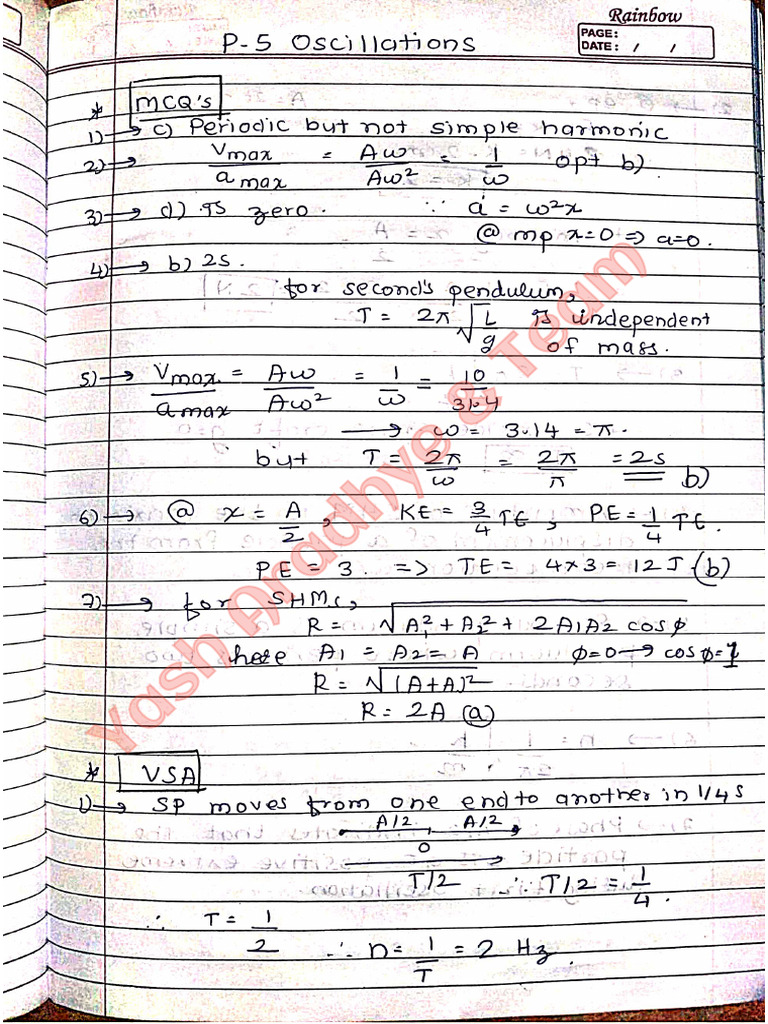 Rainbow
PAGE:
DATE: / /
P-5 Oscillations
* MCQ's
1) → c) Periodic but not simple harmonic
2) → Vmax / amax = Aω / Aω² = 1/ω opt b)
3) → d) is zero. ∵ a = ω²x
@ mp x=0 ⇒ a=0.
4) → b) 2s.
for second's pendulum,
T = 2π√(L/g) is independent
of mass.
5) → Vmax / amax = Aω / Aω² = 1/ω = 10/31.4
→ ω = 3.14 = π.
but T = 2π/ω = 2π/π = 2s b)
6) → @ x = A/2, KE = 3/4 TE, PE = 1/4 TE.
PE = 3. => TE = 4x3 = 12 J (b)
7) → for SHMs,
R = √(A₁² + A₂² + 2A1A2 cosϕ
here A1 = A2 = A ϕ=0 → cosϕ=1
R = √(A+A)²
R = 2A (a)
* VSA
1) → SP moves from one end to another in 1/4 s
A/2 A/2
0
T/2 ∴ T/2 = 1/4.
∴ T = 1/2 ∴ n = 1/T = 2 Hz.
Yash Aradhye & Team